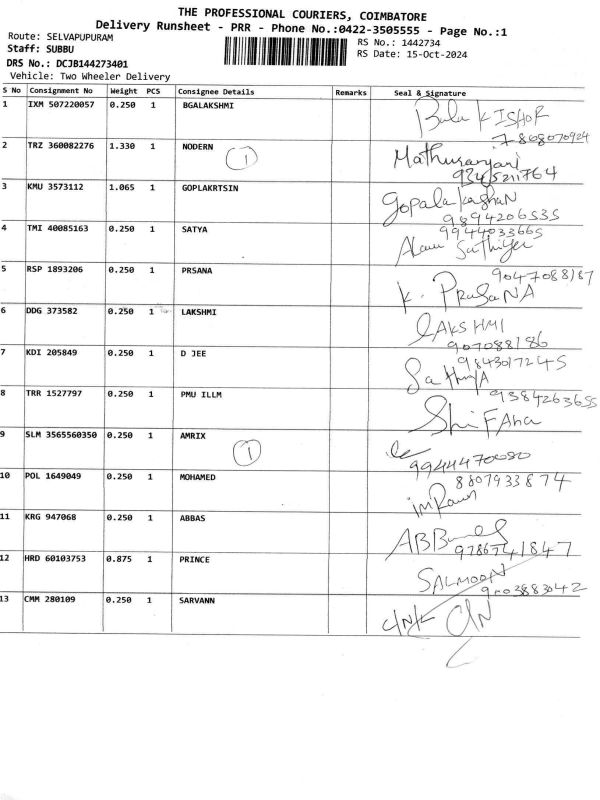 THE PROFESSIONAL COURIERS, COIMBATORE
Delivery Runsheet - PRR - Phone No.:0422-3505555 - Page No.:1
Route: SELVAPUPURAM
RS No.: 1442734
Staff: SUBBU
RS Date: 15-Oct-2024
DRS No.: DCJB144273401
Vehicle: Two Wheeler Delivery
S No Consignment No Weight PCS Consignee Details Remarks Seal & Signature
1 IXM 507220057 0.250 1 BGALAKSHMI Bala KISHOR
7868070924
2 TRZ 360082276 1.330 1 NODERN 1 Mathusanjani
9345211764
3 KMU 3573112 1.065 1 GOPLAKRTSIN Gopalakrishan
9894206535
4 TMI 40085163 0.250 1 SATYA 9944033665
Sathiya
5 RSP 1893206 0.250 1 PRSANA 9047088187
K. PRaSaNA
6 DDG 373582 0.250 1 LAKSHMI LAKSHMI
907088186
7 KDI 205849 0.250 1 D JEE 9843017245
SathiyA
8 TRR 1527797 0.250 1 PMU ILLM 9384263655
ShiFAna
9 SLM 3565560350 0.250 1 AMRIX 1
9944470080
10 POL 1649049 0.250 1 MOHAMED 8807933874
imRan
11 KRG 947068 0.250 1 ABBAS
9786741847
12 HRD 60103753 0.875 1 PRINCE SALMOON
9003883042
13 CMM 280109 0.250 1 SARVANN